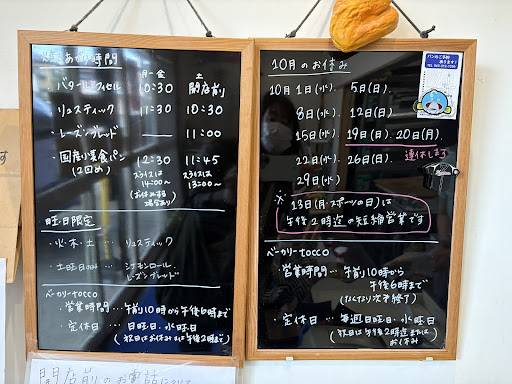 焼きあがり時間
月〜金 土
・バタール・フィセル 10:30 開店前
・リュスティック 11:30 10:30
・レーズンブレッド —— 11:00
・国産小麦食パン 12:30 11:45
(2回め) スライスは スライスは
14:00〜 13:00〜
(お休みする
場合あり)
曜日限定
・火・木・土 … リュスティック
・土曜日のみ … シナモンロール
レーズンブレッド
ベーカリーtocco
・営業時間 … 午前10時から午後6時まで
・定休日 … 日曜日・水曜日
(祝日はお休みまたは午後2時まで)
開店前のお電話に
10月のお休み
10月1日(水)、5日(日)、
8日(水)、12日(日)
15日(水)、19日(日)、20日(月)、
連休します
22日(水)、26日(日)、
29日(水)
※ 13日(月・スポーツの日)は
午後2時迄の短縮営業です
ベーカリーtocco
・営業時間 … 午前10時から
午後6時まで
(なくなり次第終了)
・定休日 … 毎週日曜日・水曜日
(祝日は午後2時迄または
お休み)
パンのご予約
承ります!